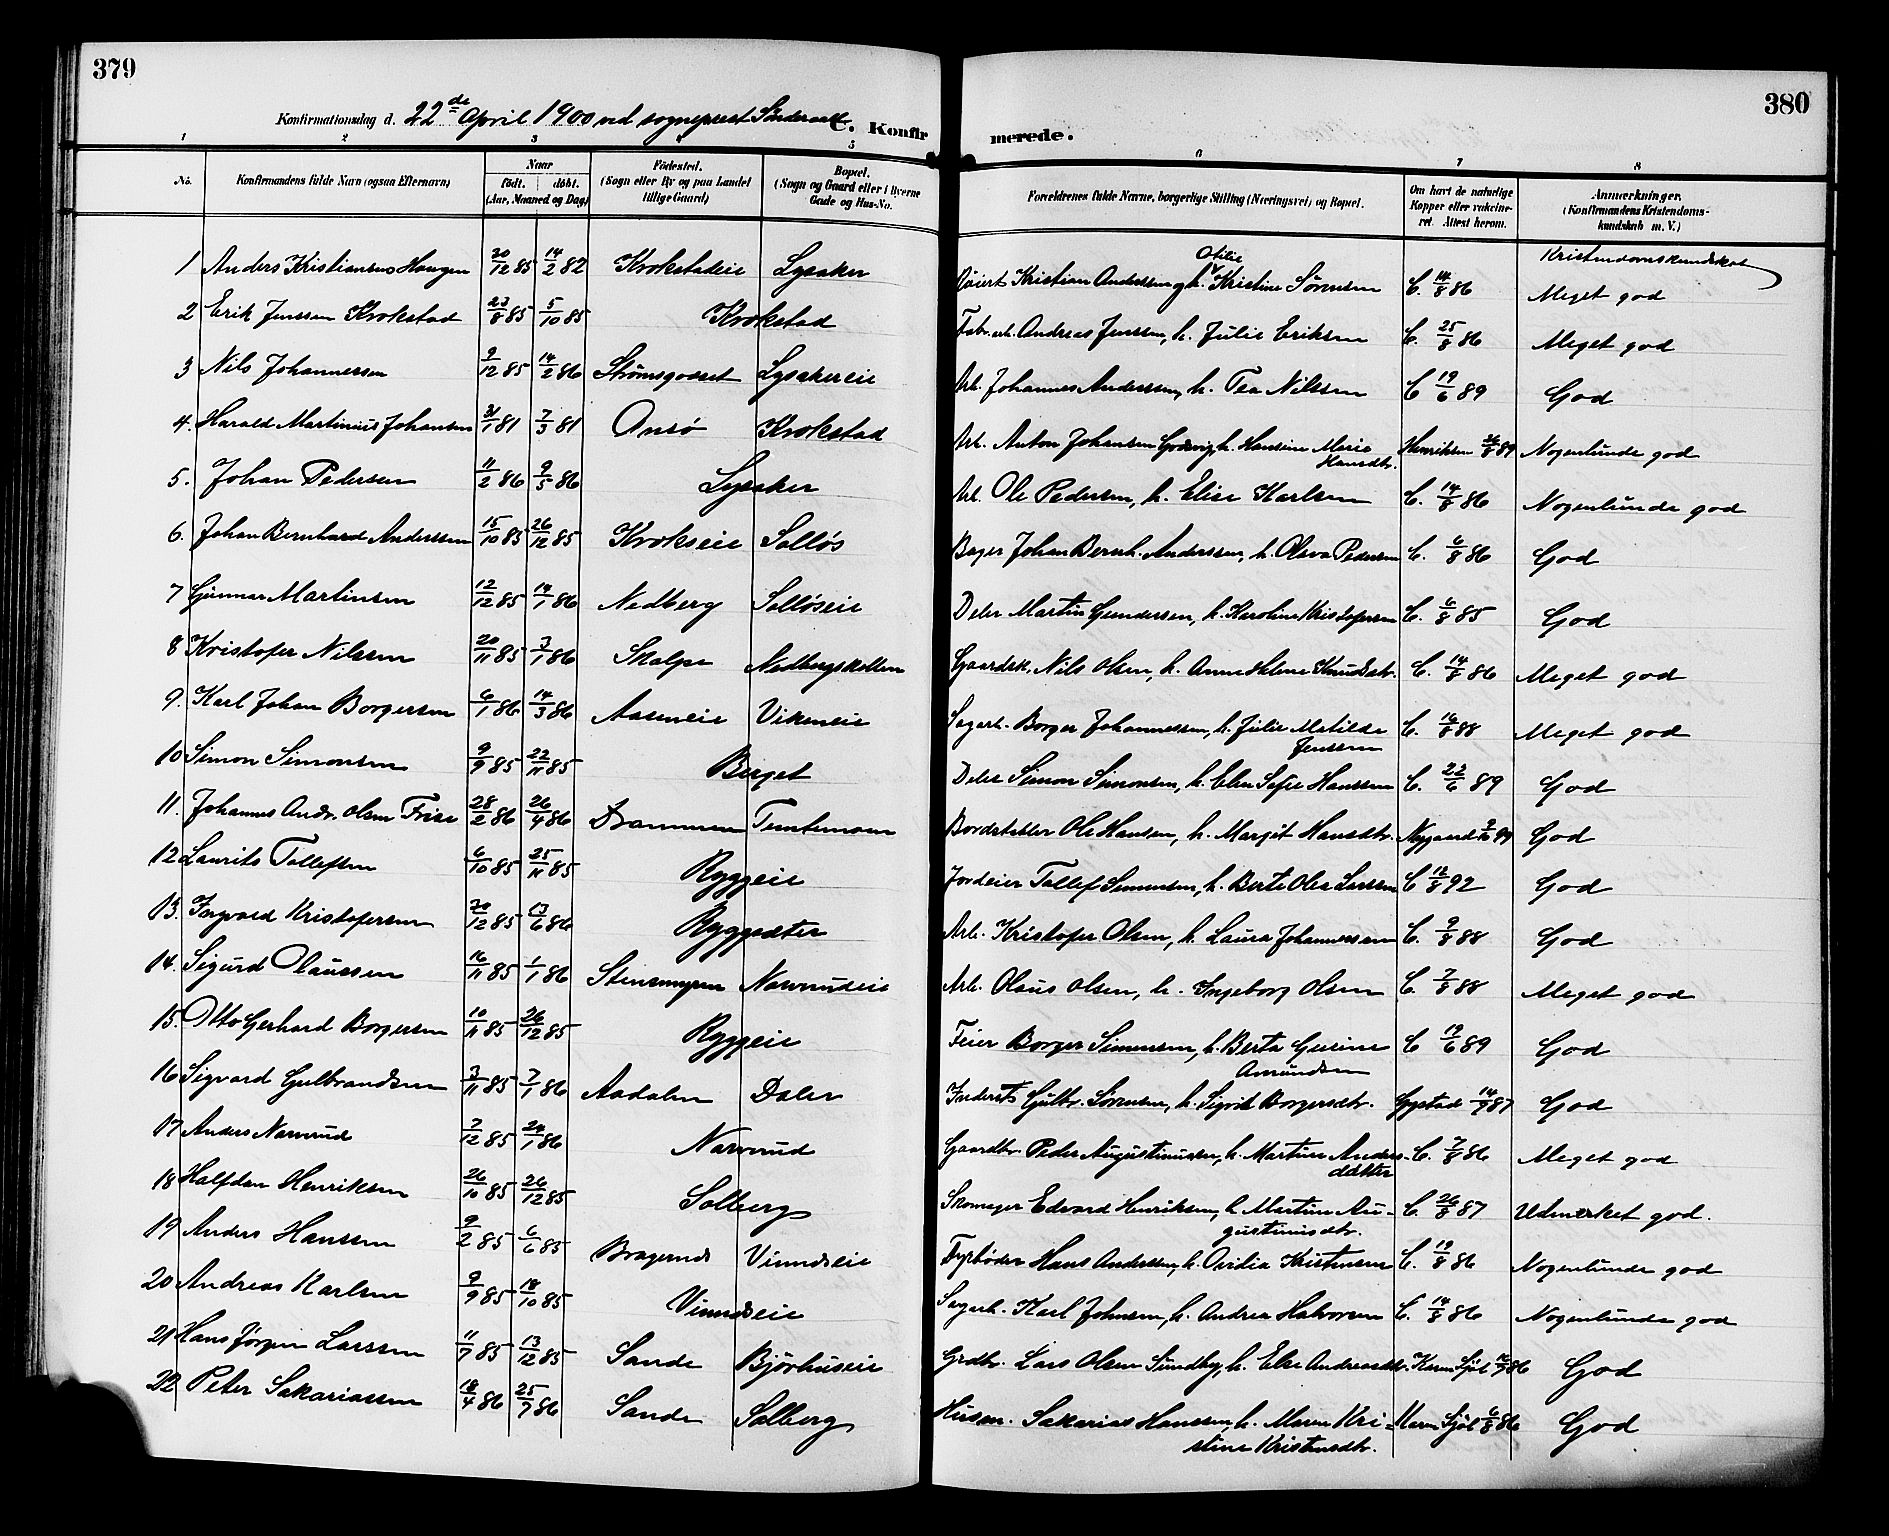 379
380
Konfirmationsdag d. 22de April 1900 ved sogneprest
C. Konfirmerede.
1 2 3 5 6 7 8
No. Konfirmandens fulde Navn (ogsaa Efternavn) Naar født. døbt. (Aar, Maaned og Dag) Fødested. (Sogn eller By og paa Landet tillige Gaard) Bopæl. (Sogn og Gaard eller i Byerne Gade og Hus-No. Forældrenes fulde Navne, borgerlige Stilling (Næringsvei) og Bopæl. Om havt de naturlige Kopper eller vakcineret. Attest herom. Anmærkninger. (Konfirmandens Kristendomskundskab m. V.)
Kristendomskundskab
1 Anders Kristiansen Haugen 20/12 85 14/2 82 Krokstadeie Lysaker Kristian Anderssen og h. Otilie Kristine Sørensen C. 14/8 86 Meget god
2 Erik Jenssen Krokstad 23/8 85 5/10 85 Krokstad Fabr.arb. Andreas Jenssen, h. Julie Eriksen C. 25/8 86 Meget god
3 Nils Johannessen 9/12 85 14/2 86 Strømsgodset Lysakereie Arb. Johannes Anderssen, h. Tea Nilssen C 19/6 89 God
4. Harald Martinius Johansen 31/1 81 7/3 81 Onsø Krokstad Arb. Anton Johansen, h. Hansine Marie Hansdtr. Henriksen 26/8 89 Nogenlunde god
5. Johan Pedersen 11/2 86 9/5 86 Lysaker Arb. Ole Pedersen, h. Elise Karlsen C. 14/8 86 Nogenlunde god
6. Johan Bernhard Anderssen 15/10 85 26/12 85 Krokseie Solløs Bager Johan Bernh. Anderssen, h. Olava Pedersen C. 6/8 86 God
7 Gunnar Martinsen 12/12 85 14/1 86 Nedberg Solløseie Deler Martin Gundersen, h. Karoline Kristofersen C. 6/8 85 God
8 Kristofer Nilssen 20/11 85 3/1 86 Skalpe Nedbergskollen Gaardsk. Nils Olsen, h. Anne Helene Knudsdtr. C. 14/8 86 Meget god
9. Karl Johan Borgersen 6/1 86 14/3 86 Aaseneie Vikeneie Sagarb. Borger Johannessen, h. Julie Matilde Jenssen C. 16/8 88 Meget god
10 Simon Simonsen 9/9 85 22/11 85 Berget Deler Simon Simonsen, h. Elen Sofie Hanssen C. 22/6 89 God
11. Johannes Andr. Olsen 28/2 86 26/4 86 Drammen Bordstabler Ole Hansen, h. Margit Hansdtr. Nygaard God
12 Laurits Tollefsen 6/10 85 25/11 85 Ryggeie Jordeier Tollef Simensen, h. Berte Olea Larssen C 12/8 92 God
13. Ingvald Kristofersen 20/12 85 13/6 86 Ryggsæter Arb. Kristofer Olsen, h. Laura Johannessen C. 9/8 88 God
14. Sigurd Olaussen 16/11 85 1/1 86 Stensmyren Narvrudeie Arb. Olaus Olsen, h. Ingeborg Olsen C. 7/8 88 Meget god
15. Otto Gerhard Borgersen 10/11 85 26/12 85 Ryggeie Feier Borger Simensen, h. Berta Gusine Amundsen C 19/6 89 God
16 Sigvard Gulbrandsen 3/11 85 7/1 86 Aadalen Daler Inderst Gulbr. Sørensen, h. Sigrid Borgersdtr. 14/9 87 God
17 Anders Narvrud 7/12 85 24/1 86 Narvrud Gaardbr. Peder Augustinusen, h. Martine Andersdatter C. 7/8 86 Meget god
18 Halfdan Henriksen 26/10 85 26/12 85 Solberg Skomager Edvard Henriksen, h. Martine Augustinusdtr. C. 26/8 87 Udmerket god.
19 Anders Hanssen 9/2 85 6/6 85 Bragernes Vinndseie Fyrbøder Hans Anderssen, h. Ovidia Kristensen C. 19/8 86 Nogenlunde god
20 Andreas Karlsen 9/9 85 18/10 85 Vinndseie Sagarb. Karl Johnsen, h. Andrea Halvorsen C. 14/8 86 Nogenlunde god
21 Hans Jørgen Larssen 11/7 85 13/12 85 Sande Bjørhuseie Grdbr. Lars Olsen Sundby, h. Else Andreasdtr. God
22 Peter Sakariassen 18/4 86 25/7 86 Sande Solberg Husm. Sakarias Hanssen, h. Maren Kristine Kristensdtr. Maren Sjøl 6/8 86 God